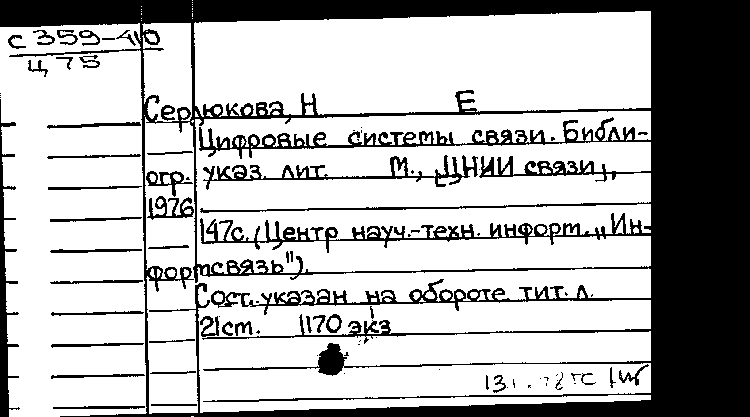 С 359-410
Ц 75
Сердюкова, Н Е
Цифровые системы связи. Библи-
огр. указ. лит. М., [ЦНИИ связи],
1976
147с. (Центр науч.-техн. информ. „Ин-
формсвязь").
Сост. указан на обороте тит. л.
21см. 1170 экз